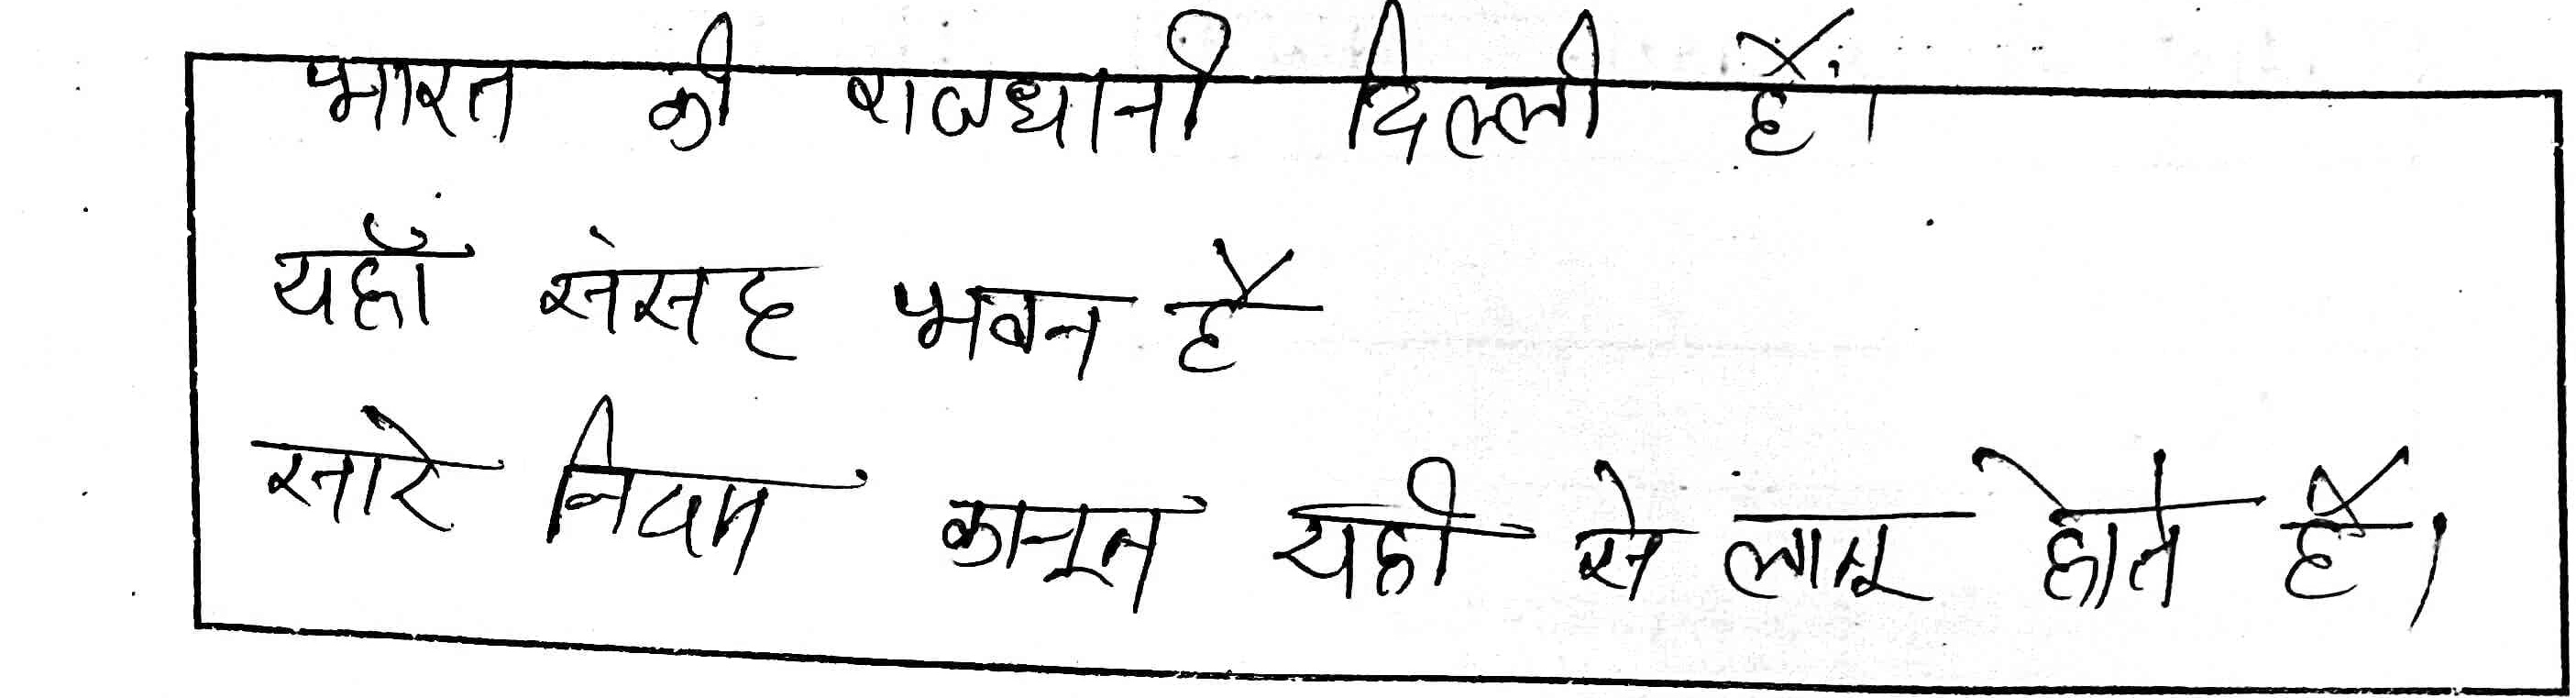 भारत की राजधानी दिल्ली हैं।
यहाँ संसद भवन है
सारे नियम कानून यही से लागू होते है।